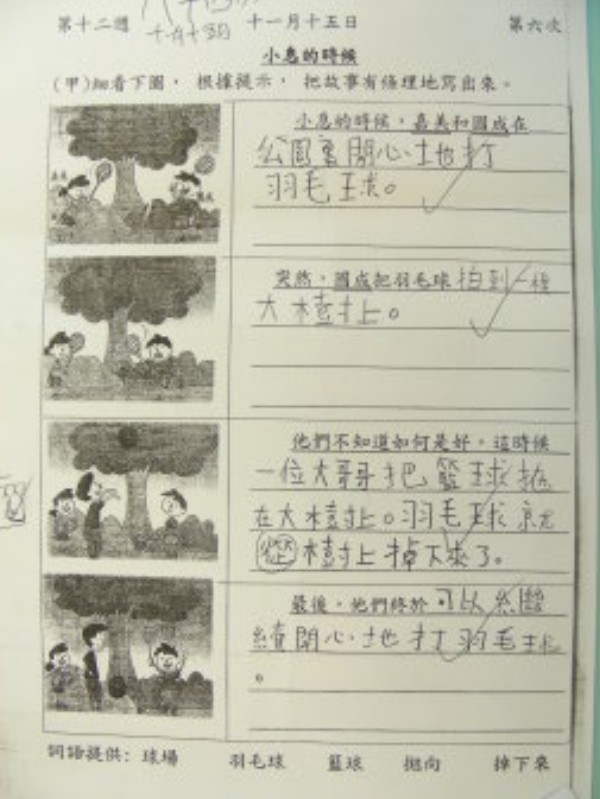 第十二週 十一月十五日 第六次
小息的時候
(甲)細看下圖, 根據提示, 把故事有條理地寫出來。
小息的時候,嘉美和國成在
公園裏開心地打
羽毛球。
突然,國成把羽毛球拍到一棵
大樹上。
他們不知道如何是好。這時候
一位大哥哥把籃球拋
在大樹上。羽毛球就
從樹上掉下來了。
最後,他們終於可以繼
續開心地打羽毛球
。
詞語提供: 球場 羽毛球 籃球 拋向 掉下來